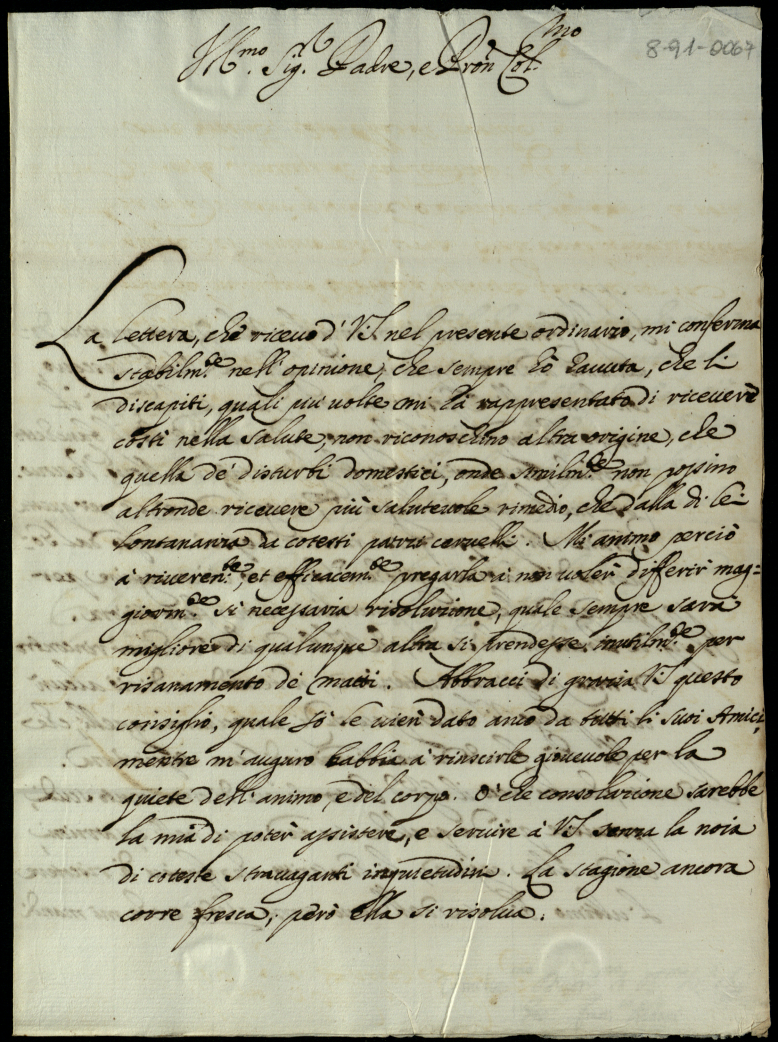 8-91-0067
Ill.mo Sig.r Padre, e Pron Col.mo
La lettera, che riceuo d' V.S. nel presente ordinario, mi conferma
stabilm.te nell' opinione, che sempre hò hauuta, che li
discapiti, quali più uolte mi hà rappresentato di riceuere
costì nella salute, non riconoschino altra origine, che
quella de' disturbi domestici, onde similm.te non possino
altronde riceuere più saluteuole rimedio, che dalla di lei
lontananza da cotesti ceruelli. Mi animo perciò
à riueren.te, et efficacem.te pregarla à non uoler differir mag=
giorm.te sì necessaria risoluzione, quale sempre sarà
migliore di qualunque altra si prendesse inutilm.te per
risanamento de' matti. Abbracci di grazia V.S. questo
consiglio, quale sò le uien dato anco da tutti li suoi Amici,
mentre m'auguro habbia à riuscirle gioueuole per la
quiete dell' animo, e del corpo. O' che consolazione sarebbe
la mia di poter assistere, e seruire à V.S. senza la noia
di coteste strauaganti inquietudini. La stagione ancora
corre fresca, però ella si risolua.